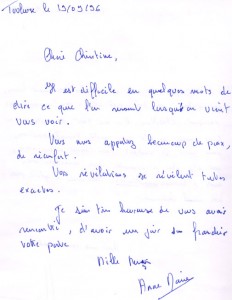 Toulouse le 19/09/96
Chère Christine,
Il est difficile en quelques mots de
dire ce que l'on ressent lorsqu'on vient
vous voir.
Vous nous apportez beaucoup de paix,
de réconfort.
Vos révélations se révèlent toutes
exactes.
Je suis très heureuse de vous avoir
rencontré, d'avoir un jour pu franchir
votre porte
Mille merci
Anne Marie